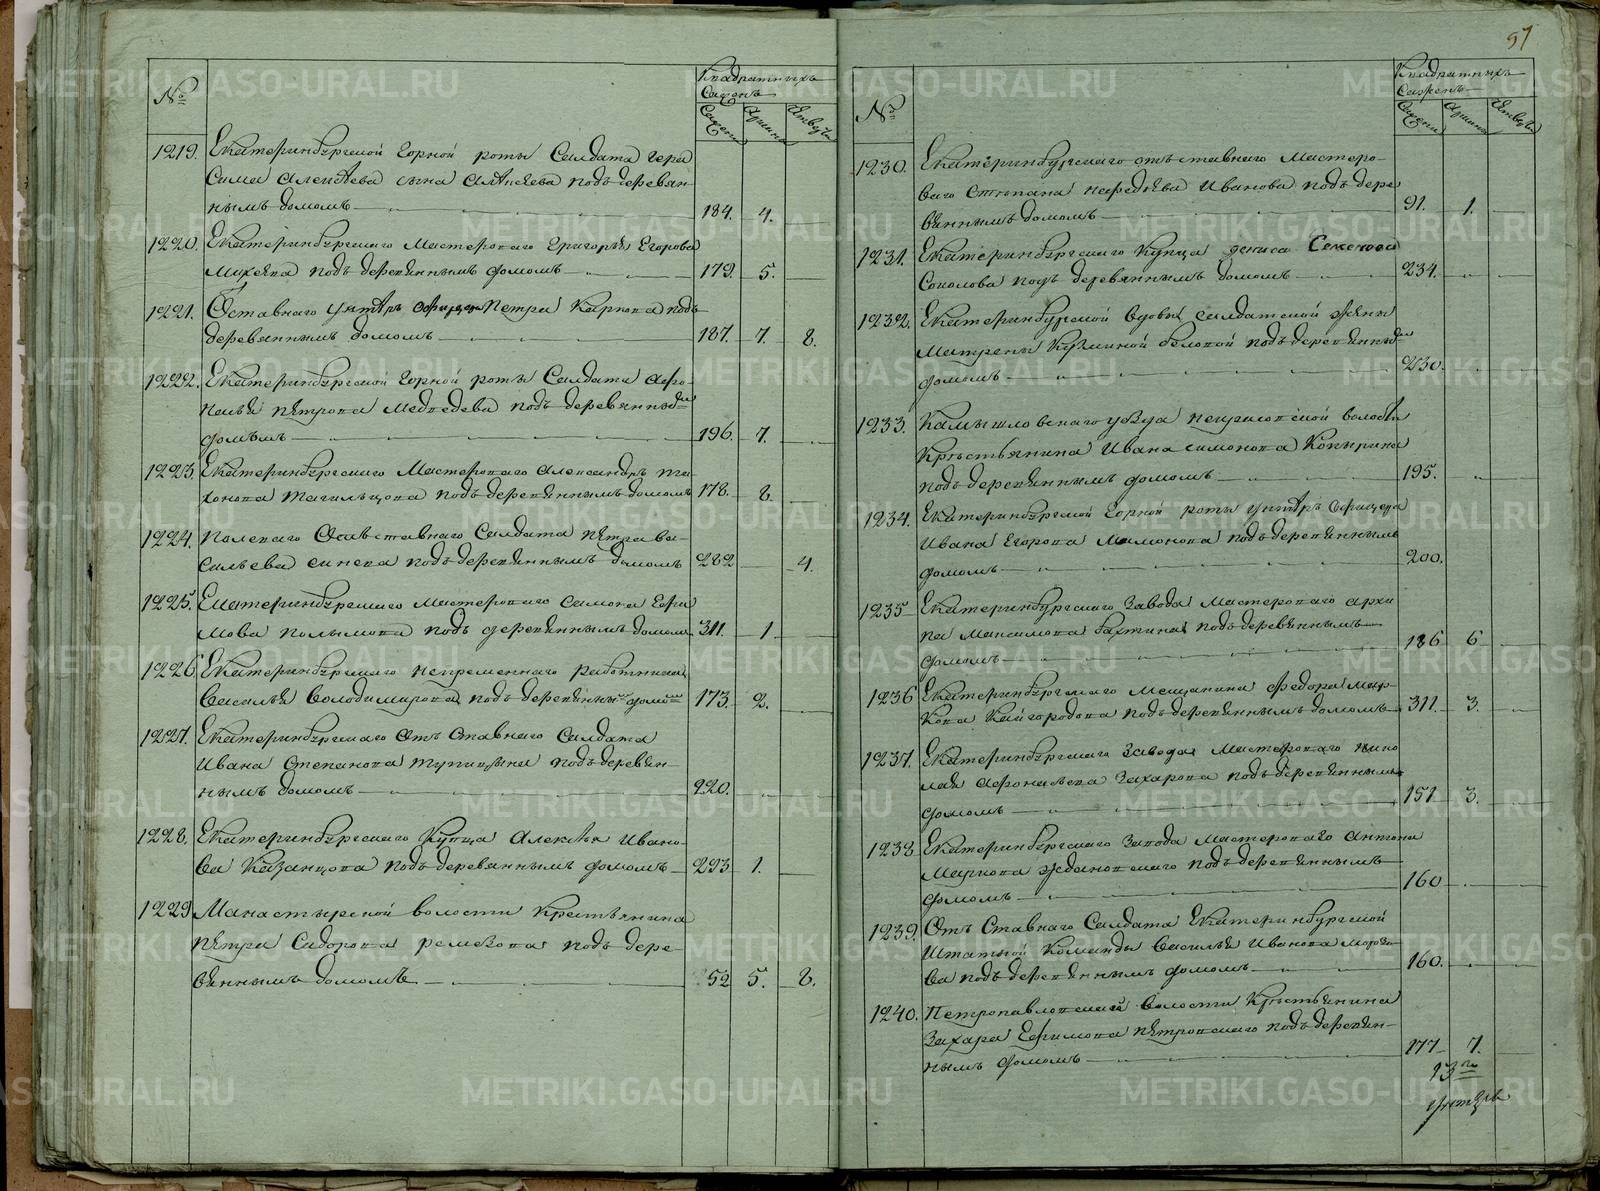 №
Квадратныхъ
Саженъ
Сажени
Аршин
Четверти
1219. Екатеринбургской Горной роты Солдата Гера
сима Алексѣева сына Алексѣева подъ деревян
нымъ домомъ 184. 4.
1220. Екатеринбургскаго Мастероваго Григорья Егорова
Михѣева подъ деревяннымъ домомъ 179. 5.
1221. Отставнаго унтеръ офицера Петра Карпова подъ
деревяннымъ домомъ 187. 7. 8.
1222. Екатеринбургской Горной роты Солдата Афо
насья Петрова Медведева подъ деревянны
домомъ 196. 7.
1223. Екатеринбургскаго Мастероваго Александръ Ти
хонова Тагильцова подъ деревяннымъ домомъ 178. 8.
1224. Полеваго Отставнаго Солдата Петра Ва
сильева Синева подъ деревяннымъ домомъ 282 4.
1225. Екатеринбургскаго Мастероваго Самона Ефи
мова Полымова подъ деревяннымъ домомъ 311. 1
1226. Екатеринбургскаго непременнаго работника
Василья Володимирова подъ деревянны домо 173. 2.
1227. Екатеринбургскаго Отъ Ставнаго Солдата
Ивана Степанова Тупицына подъ деревян
нымъ домомъ 220.
1228. Екатеринбургскаго Купца Алексѣя Ивано
ва Казанцова подъ деревяннымъ домомъ 293 1.
1229 Манастырской волости Крестьянина
Петра Сидорова Ремезова подъ дере
вяннымъ домомъ 52 5. 8.
57
№
Квадратныхъ
Саженъ
Сажени
Аршин
Четверти
1230. Екатеринбургскаго отъставнаго Мастеро
ваго Степана Нефедьева Иванова подъ дере
вяннымъ домомъ 91. 1.
1231. Екатеринбургскаго Купца Дениса Семенова
Соколова подъ деревяннымъ домомъ 234.
1232. Екатеринбургской вдовы солдатской жены
Матрены Кузминой Беловой подъ деревянны
домомъ 230.
1233. Камышловскаго уѣзда волости
Крестьянина Ивана Симонова Кокырина
подъ деревяннымъ домомъ 195.
1234. Екатеринбургской Горной роты унтеръ офицера
Ивана Егорова Мамонова подъ деревяннымъ
домомъ 200.
1235 Екатеринбургскаго Завода Мастероваго Архи
па Максимова Бахтина подъ деревяннымъ
домомъ 186 6
1236 Екатеринбургскаго Мещанина Федора Мар
кова Кайгородова подъ деревяннымъ домомъ 311 3.
1237. Екатеринбургскаго Завода Мастероваго Нико
лая Афонасьева Захарова подъ деревяннымъ
домомъ 151 3.
1238 Екатеринбургскаго Завода Мастероваго Антона
Маркова Ждановскаго подъ деревяннымъ
домомъ 160
1239. Отъ Ставнаго Солдата Екатеринбургской
Штатной Команды Василья Иванова Морози
ва подъ деревяннымъ домомъ 160.
1240. Петропавловской волости Крестьянина
Захара Ефимова Петровскаго подъ деревян
нымъ домомъ 177 7.
13